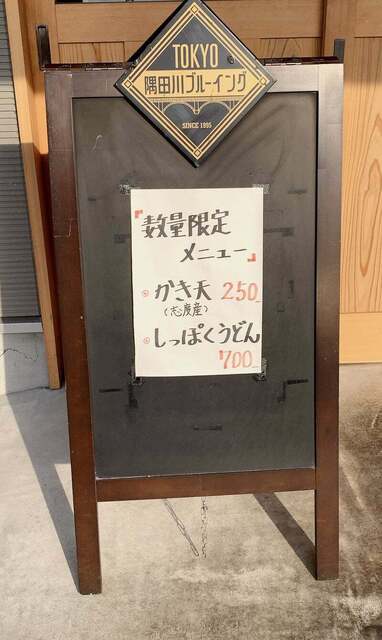 TOKYO
隅田川ブルーイング
SINCE 1995
『数量限定
メニュー』
◎ かき天 250
(志度産)
◎ しっぽくうどん
700